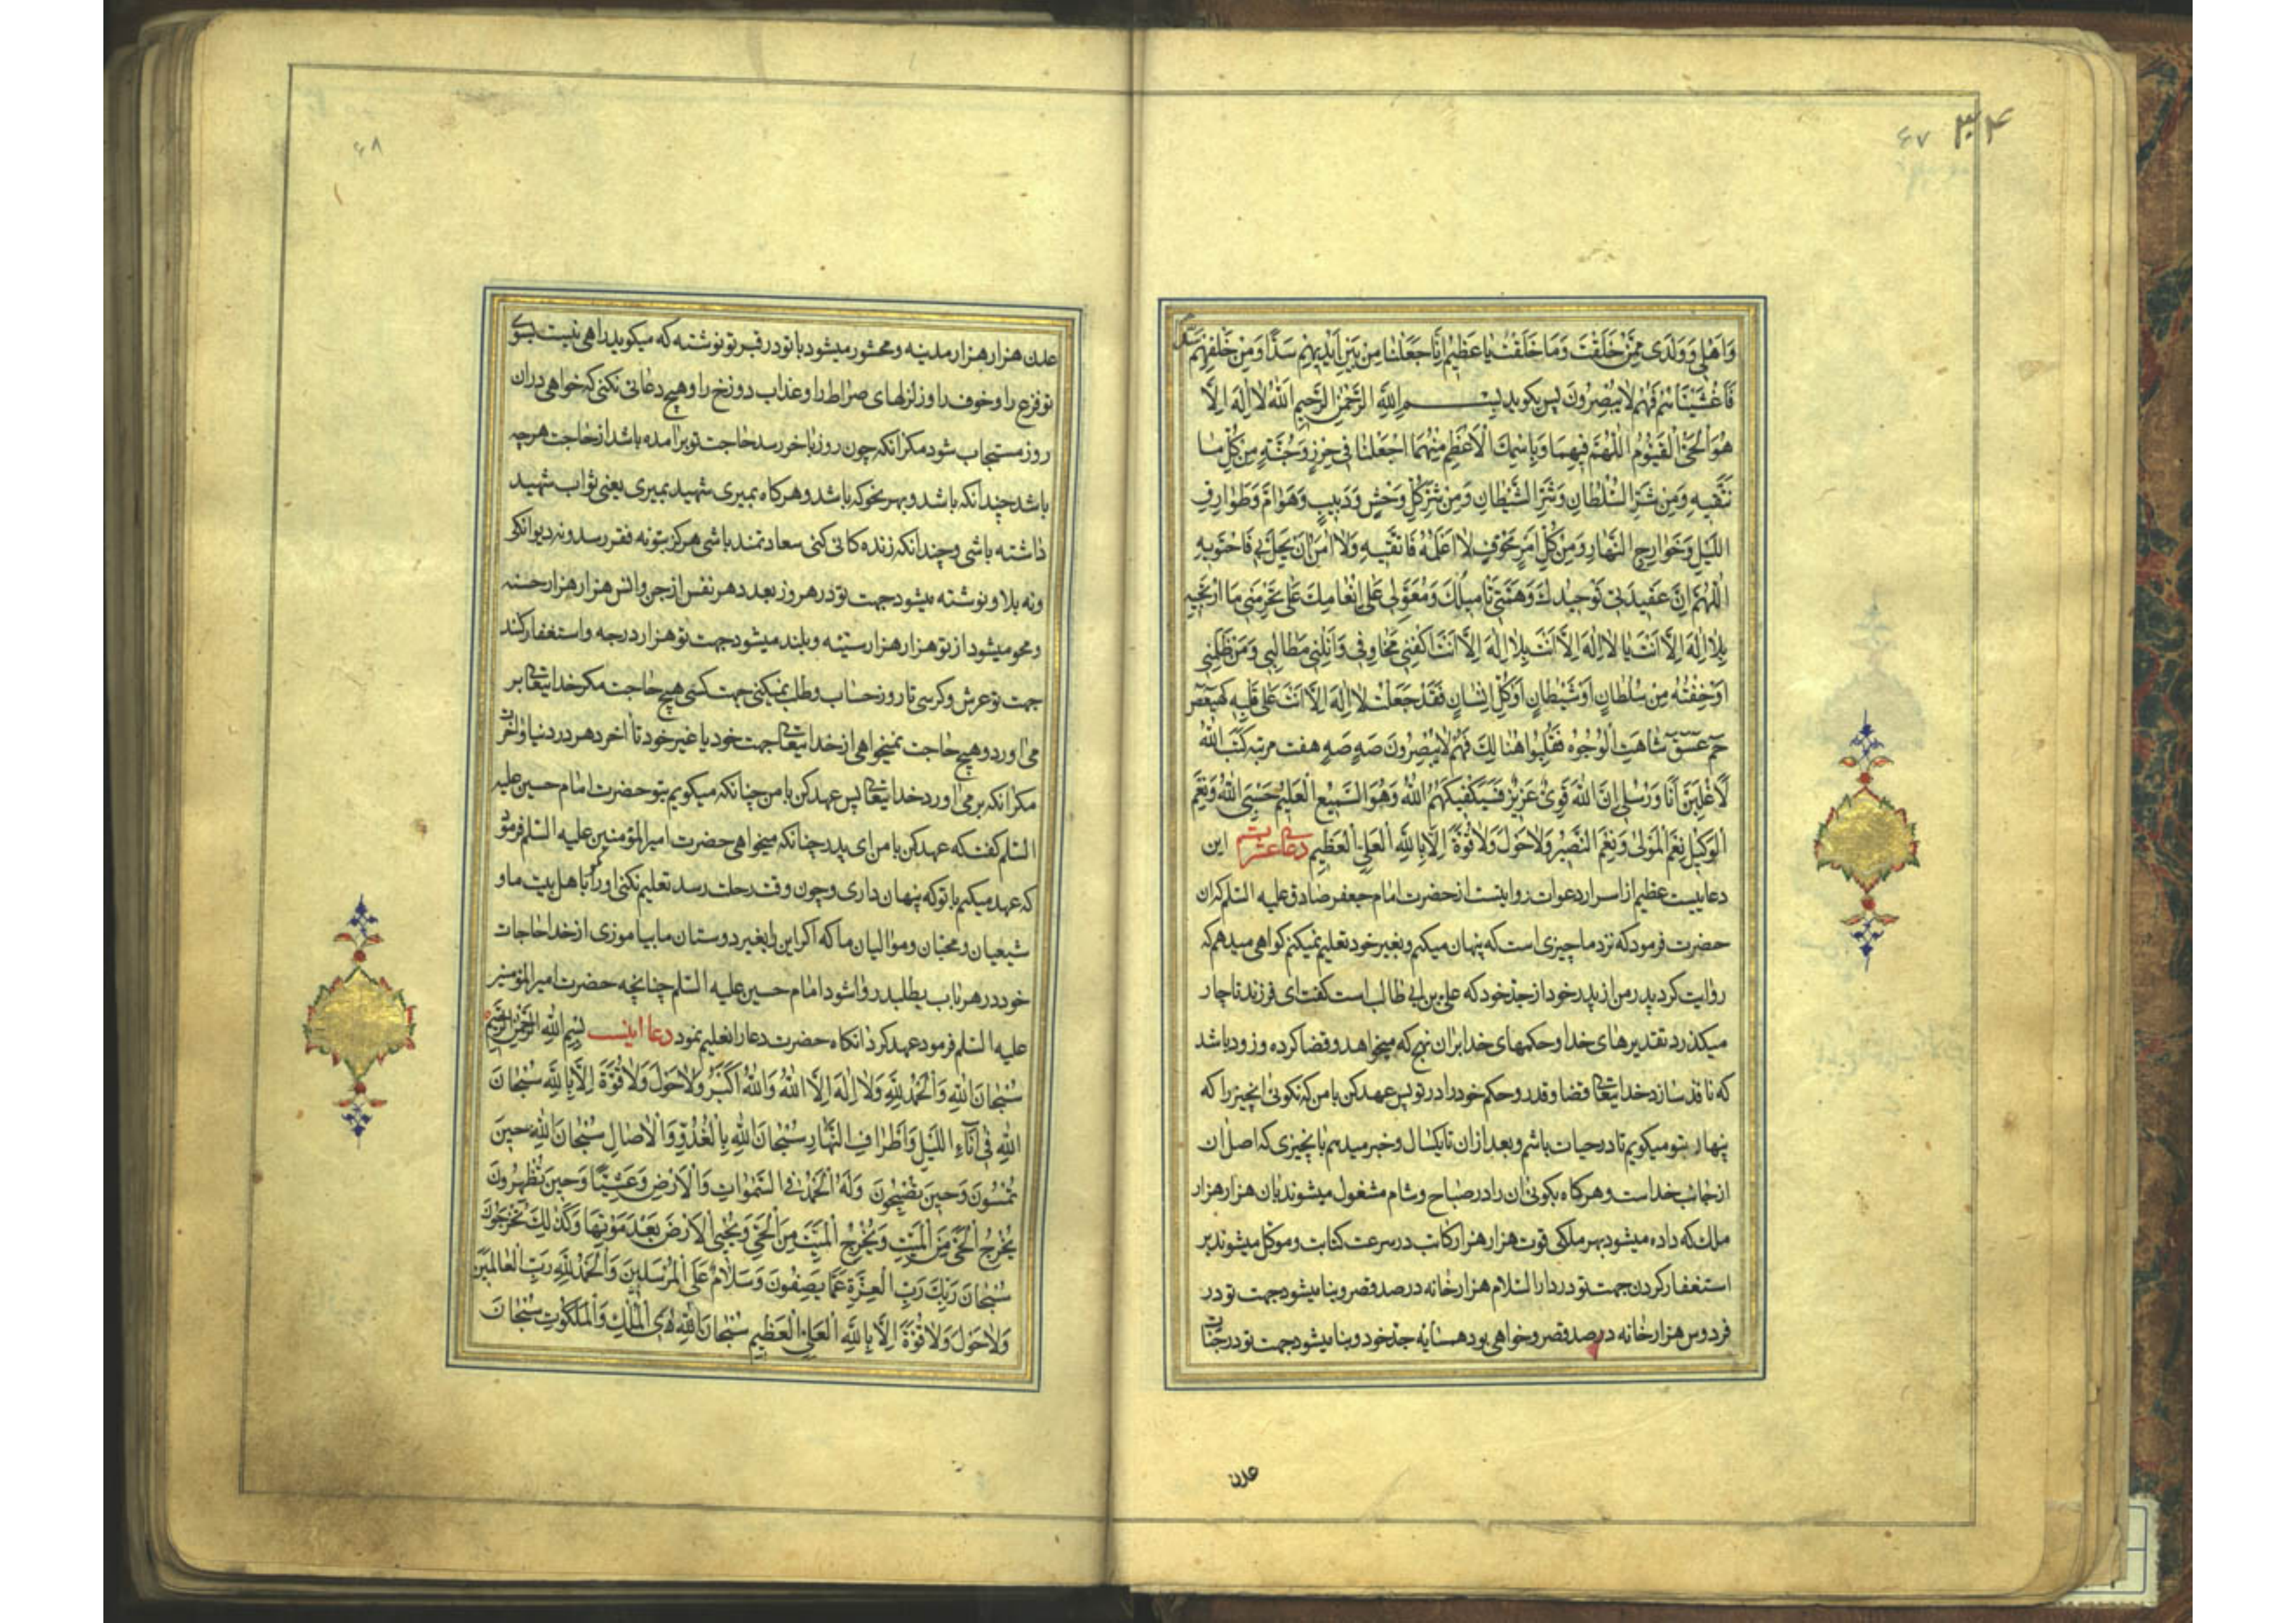 ۳۴
۶۷
وَاَهْلِی وَوَلَدی مِمَّنْ خَلَقْتَ وَمَا خَلَقْتَ یَا عَظیمُ اِنَّا جَعَلْنَا مِنْ بَیْنِ اَیْدِیهِمْ سَدًّا وَمِنْ خَلْفِهِمْ سَدًّا
فَاَغْشَیْنَاهُمْ فَهُمْ لَا یُبْصِرُونَ پس بکوید بِسْمِ اللّٰهِ الرَّحْمٰنِ الرَّحیمِ اَللّٰهُ لَا اِلٰهَ اِلَّا
هُوَ الْحَیُّ الْقَیُّومُ اَللّٰهُمَّ فِیهِمَا وَبِاسْمِكَ الْاَعْظَمِ مِنْهُمَا اجْعَلْنَا فی حِرْزٍ وَجُنَّةٍ مِنْ كُلِّ مَا
نَتَّقیهِ وَمِنْ شَرِّ السُّلْطَانِ وَشَرِّ الشَّیْطَانِ وَمِنْ شَرِّ كُلِّ وَحْشٍ وَدَبیبٍ وَهَوَامَّ وَطَوَارِفِ
اللَّیْلِ وَخَوَارِجِ النَّهَارِ وَمِنْ كُلِّ اَمْرٍ مَخُوفٍ لَا اَعْلَمُهُ فَاَتَّقیهِ وَلَا اٰمَنُ اَنْ یَحُلَّ بی فَاَحْتَوِیهِ
اَللّٰهُمَّ اِنَّ عَقیدَتی تَوْحیدُكَ وَهِمَّتی تَامیلُكَ وَمُعَوَّلی عَلیٰ اِنْعَامِكَ عَلیٰ تَحْرِمْنی مَا اَرْتَجیهِ
بِلَا اِلٰهَ اِلَّا اَنْتَ یَا لَا اِلٰهَ اِلَّا اَنْتَ بِلَا اِلٰهَ اِلَّا اَنْتَ اكْفِنی مَخَاوِفی وَاَنِلْنی مَطَالِبی وَمَنْ ظَلَمَنی
اَوْ خِفْتُهُ مِنْ سُلْطَانٍ اَوْ شَیْطَانٍ اَوْ كُلِّ اِنْسَانٍ فَقَدْ جَعَلْتُ لَا اِلٰهَ اِلَّا اَنْتَ عَلیٰ قَلْبِهِ كهیعص
حم عسق شَاهَتِ الْوُجُوهُ فَغُلِبُوا هُنَالِكَ فَهُمْ لَا یُبْصِرُونَ صَهٍ صَهٍ هفت مرتبه كَتَبَ اللّٰهُ
لَاَغْلِبَنَّ اَنَا وَرُسُلی اِنَّ اللّٰهَ قَوِیٌّ عَزیزٌ فَسَیَكْفیكَهُمُ اللّٰهُ وَهُوَ السَّمیعُ الْعَلیمُ حَسْبِیَ اللّٰهُ وَنِعْمَ
الْوَكیلُ نِعْمَ الْمَوْلیٰ وَنِعْمَ النَّصیرُ وَلَا حَوْلَ وَلَا قُوَّةَ اِلَّا بِاللّٰهِ الْعَلِیِّ الْعَظیمِ دعای این
دعاییست عظیم از اسرار دعوات روایتست از حضرت امام جعفر صادق علیه السلم كه ان
حضرت فرمود كه نزد ما چیزی است كه پنهان میكنم و بغیر خود تعلیم نمیكنم كواهی میدهم كه
روایت كرد پدر من از پدر خود از جدّ خود كه علی بن ابی طالب است كفت ای فرزند ناچار
میكذرد تقدیرهای خدا و حكمهای خدا بر ان نهج كه میخواهد و قضا كرده و زود باشد
كه نافذ سازد خدایتعالی قضا و قدر و حكم خود را در تو پس عهد كن با من كه نكوئی انچیز را كه
پنهان بتو میكویم تا در حیات باشم و بعد از ان تا یكسال و خبر میدهم بانچیزی كه اصل ان
از جانب خداست و هر كاه بكوئی ان را در صباح و شام مشغول میشوند بان هزار هزار
ملك كه داده میشود بهر ملكی قوت هزار هزار كاتب در سرعت كتابت و موكل میشوند بر
استغفار كردن جهت تو در دار السلام هزار خانه در صد قصر و بنا میشود جهت تو در
فردوس هزار خانه در صد قصر و خواهی بود همسایه جدّ خود و بنا میشود جهت تو در جنات
عدن
۶۸
عدن هزار هزار مدینه و محشور میشود با تو در قبر تو نوشته كه میكوید راهی نیست بسوی
تو فزع را و خوف را و زلزلهای صراط را و عذاب دوزخ را و هیچ دعائی نكنی كه خواهی در ان
روز مستجاب شود مكر انكه چون روز باخر رسد حاجت تو برامده باشد از حاجت هرچه
باشد چندانكه باشد و بهر نحو كه باشد و هر كاه بمیری شهید بمیری یعنی ثواب شهید
داشته باشی و چندانكه زنده كانی كنی سعادتمند باشی هركز بتو نه فقر رسد و نه دیوانكی
و نه بلا و نوشته میشود جهت تو در هر روز بعدد هر نفس از جن و انس هزار هزار حسنه
و محو میشود از تو هزار هزار سیّئه و بلند میشود جهت تو هزار درجه و استغفار كند
جهت تو عرش و كرسی تا روز حساب و طلب نمیكنی جهت كسی هیچ حاجت مكر خدایتعالی بر
می اورد و هیچ حاجت نمیخواهی از خدایتعالی جهت خود یا غیر خود تا اخر دهر در دنیا و اخرت
مكر انكه بر می اورد خدایتعالی پس عهد كن با من چنانكه میكویم بتو حضرت امام حسین علیه
السلم كفت كه عهد كن با من ای پدر چنانكه میخواهی حضرت امیر المؤمنین علیه السلم فرمود
كه عهد میكنم با تو كه پنهان داری و چون وقت رحلت رسد تعلیم نكنی او را مكر باهل بیت ما و
شیعیان و محبّان و موالیان ما كه اكر این را بغیر دوستان ما بیاموزی از خدا حاجات
خود در هر باب بطلبد روا شود امام حسین علیه السلم چنانچه حضرت امیر المؤمنین
علیه السلم فرمود عهد كرد انكاه حضرت دعا را تعلیم نمود دعا اینست بِسْمِ اللّٰهِ الرَّحْمٰنِ الرَّحیمِ
سُبْحَانَ اللّٰهِ وَالْحَمْدُ لِلّٰهِ وَلَا اِلٰهَ اِلَّا اللّٰهُ وَاللّٰهُ اَكْبَرُ وَلَا حَوْلَ وَلَا قُوَّةَ اِلَّا بِاللّٰهِ سُبْحَانَ
اللّٰهِ فی اٰنَاءِ اللَّیْلِ وَاَطْرَافِ النَّهَارِ سُبْحَانَ اللّٰهِ بِالْغُدُوِّ وَالْاٰصَالِ سُبْحَانَ اللّٰهِ حینَ
تُمْسُونَ وَحینَ تُصْبِحُونَ وَلَهُ الْحَمْدُ فِی السَّمٰوَاتِ وَالْاَرْضِ وَعَشِیًّا وَحینَ تُظْهِرُونَ
یُخْرِجُ الْحَیَّ مِنَ الْمَیِّتِ وَیُخْرِجُ الْمَیِّتَ مِنَ الْحَیِّ وَیُحْیِی الْاَرْضَ بَعْدَ مَوْتِهَا وَكَذٰلِكَ تُخْرَجُونَ
سُبْحَانَ رَبِّكَ رَبِّ الْعِزَّةِ عَمَّا یَصِفُونَ وَسَلَامٌ عَلَی الْمُرْسَلینَ وَالْحَمْدُ لِلّٰهِ رَبِّ الْعَالَمینَ
وَلَا حَوْلَ وَلَا قُوَّةَ اِلَّا بِاللّٰهِ الْعَلِیِّ الْعَظیمِ سُبْحَانَ اللّٰهِ ذِی الْمُلْكِ وَالْمَلَكُوتِ سُبْحَانَ